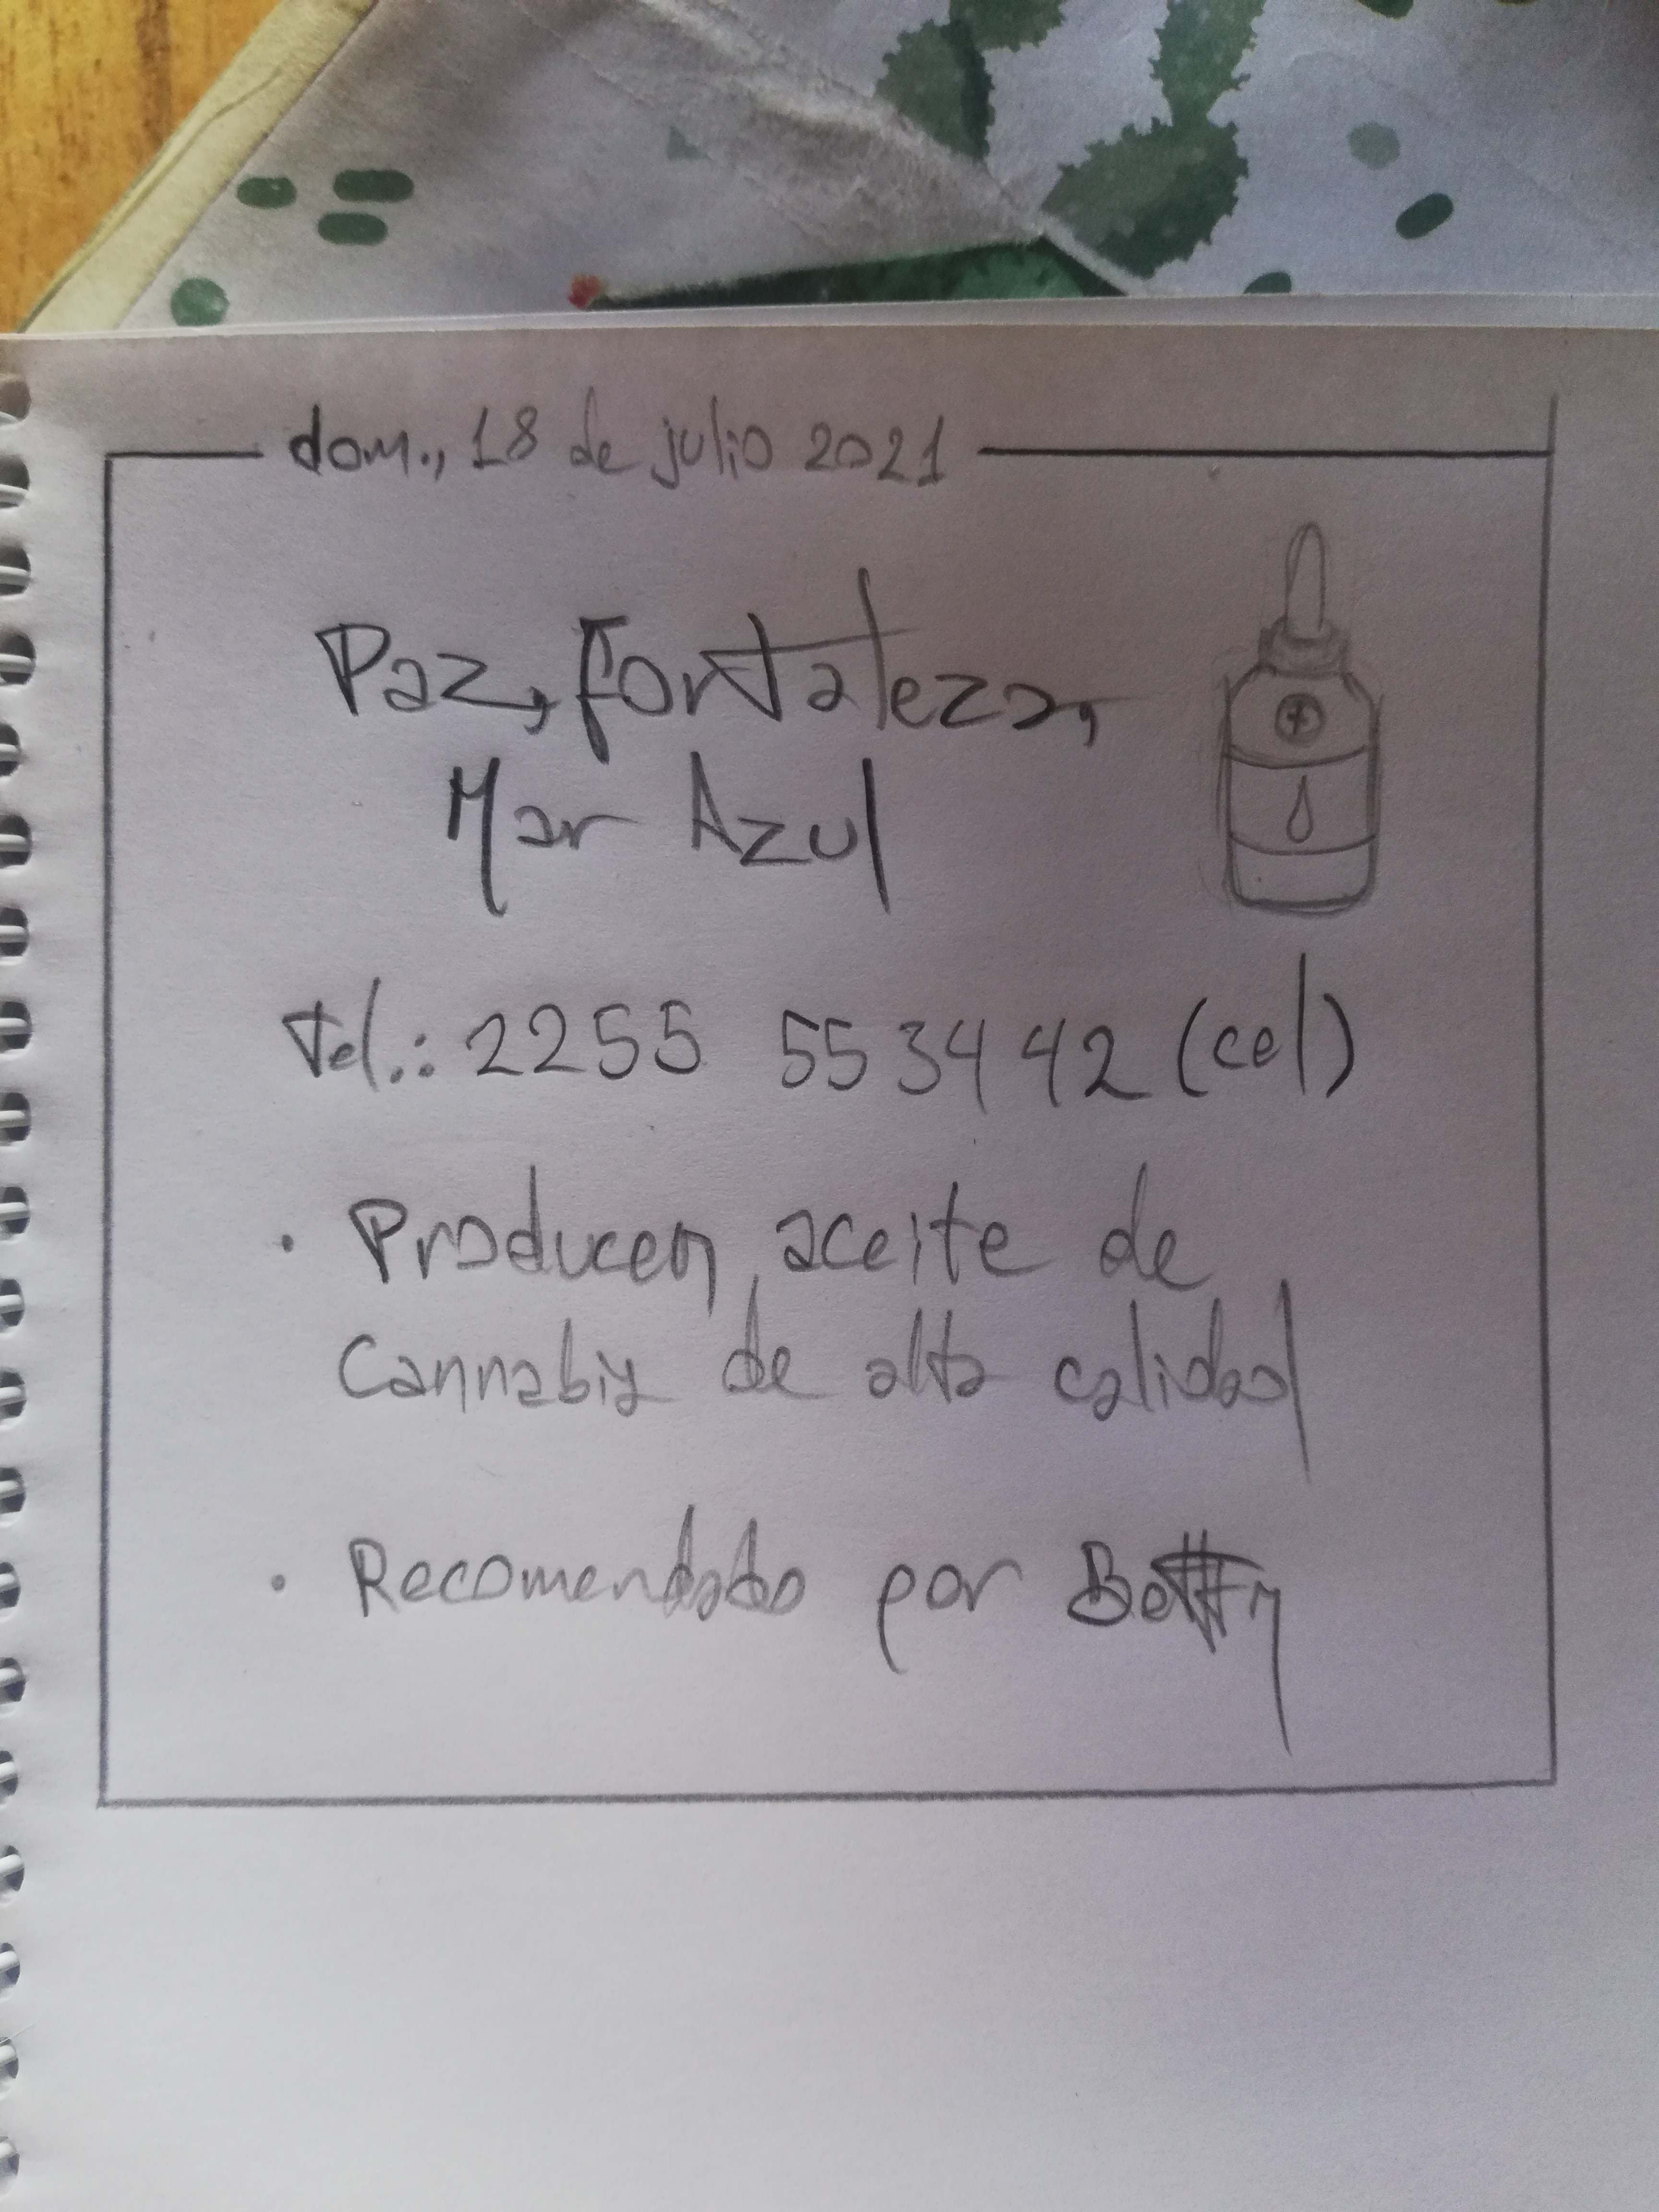 dom., 18 de julio 2021
Paz, Fortaleza,
Mar Azul
Tel.: 2255 553442 (cel)
· Producen aceite de
Cannabis de alta calidad
· Recomendado por Betty